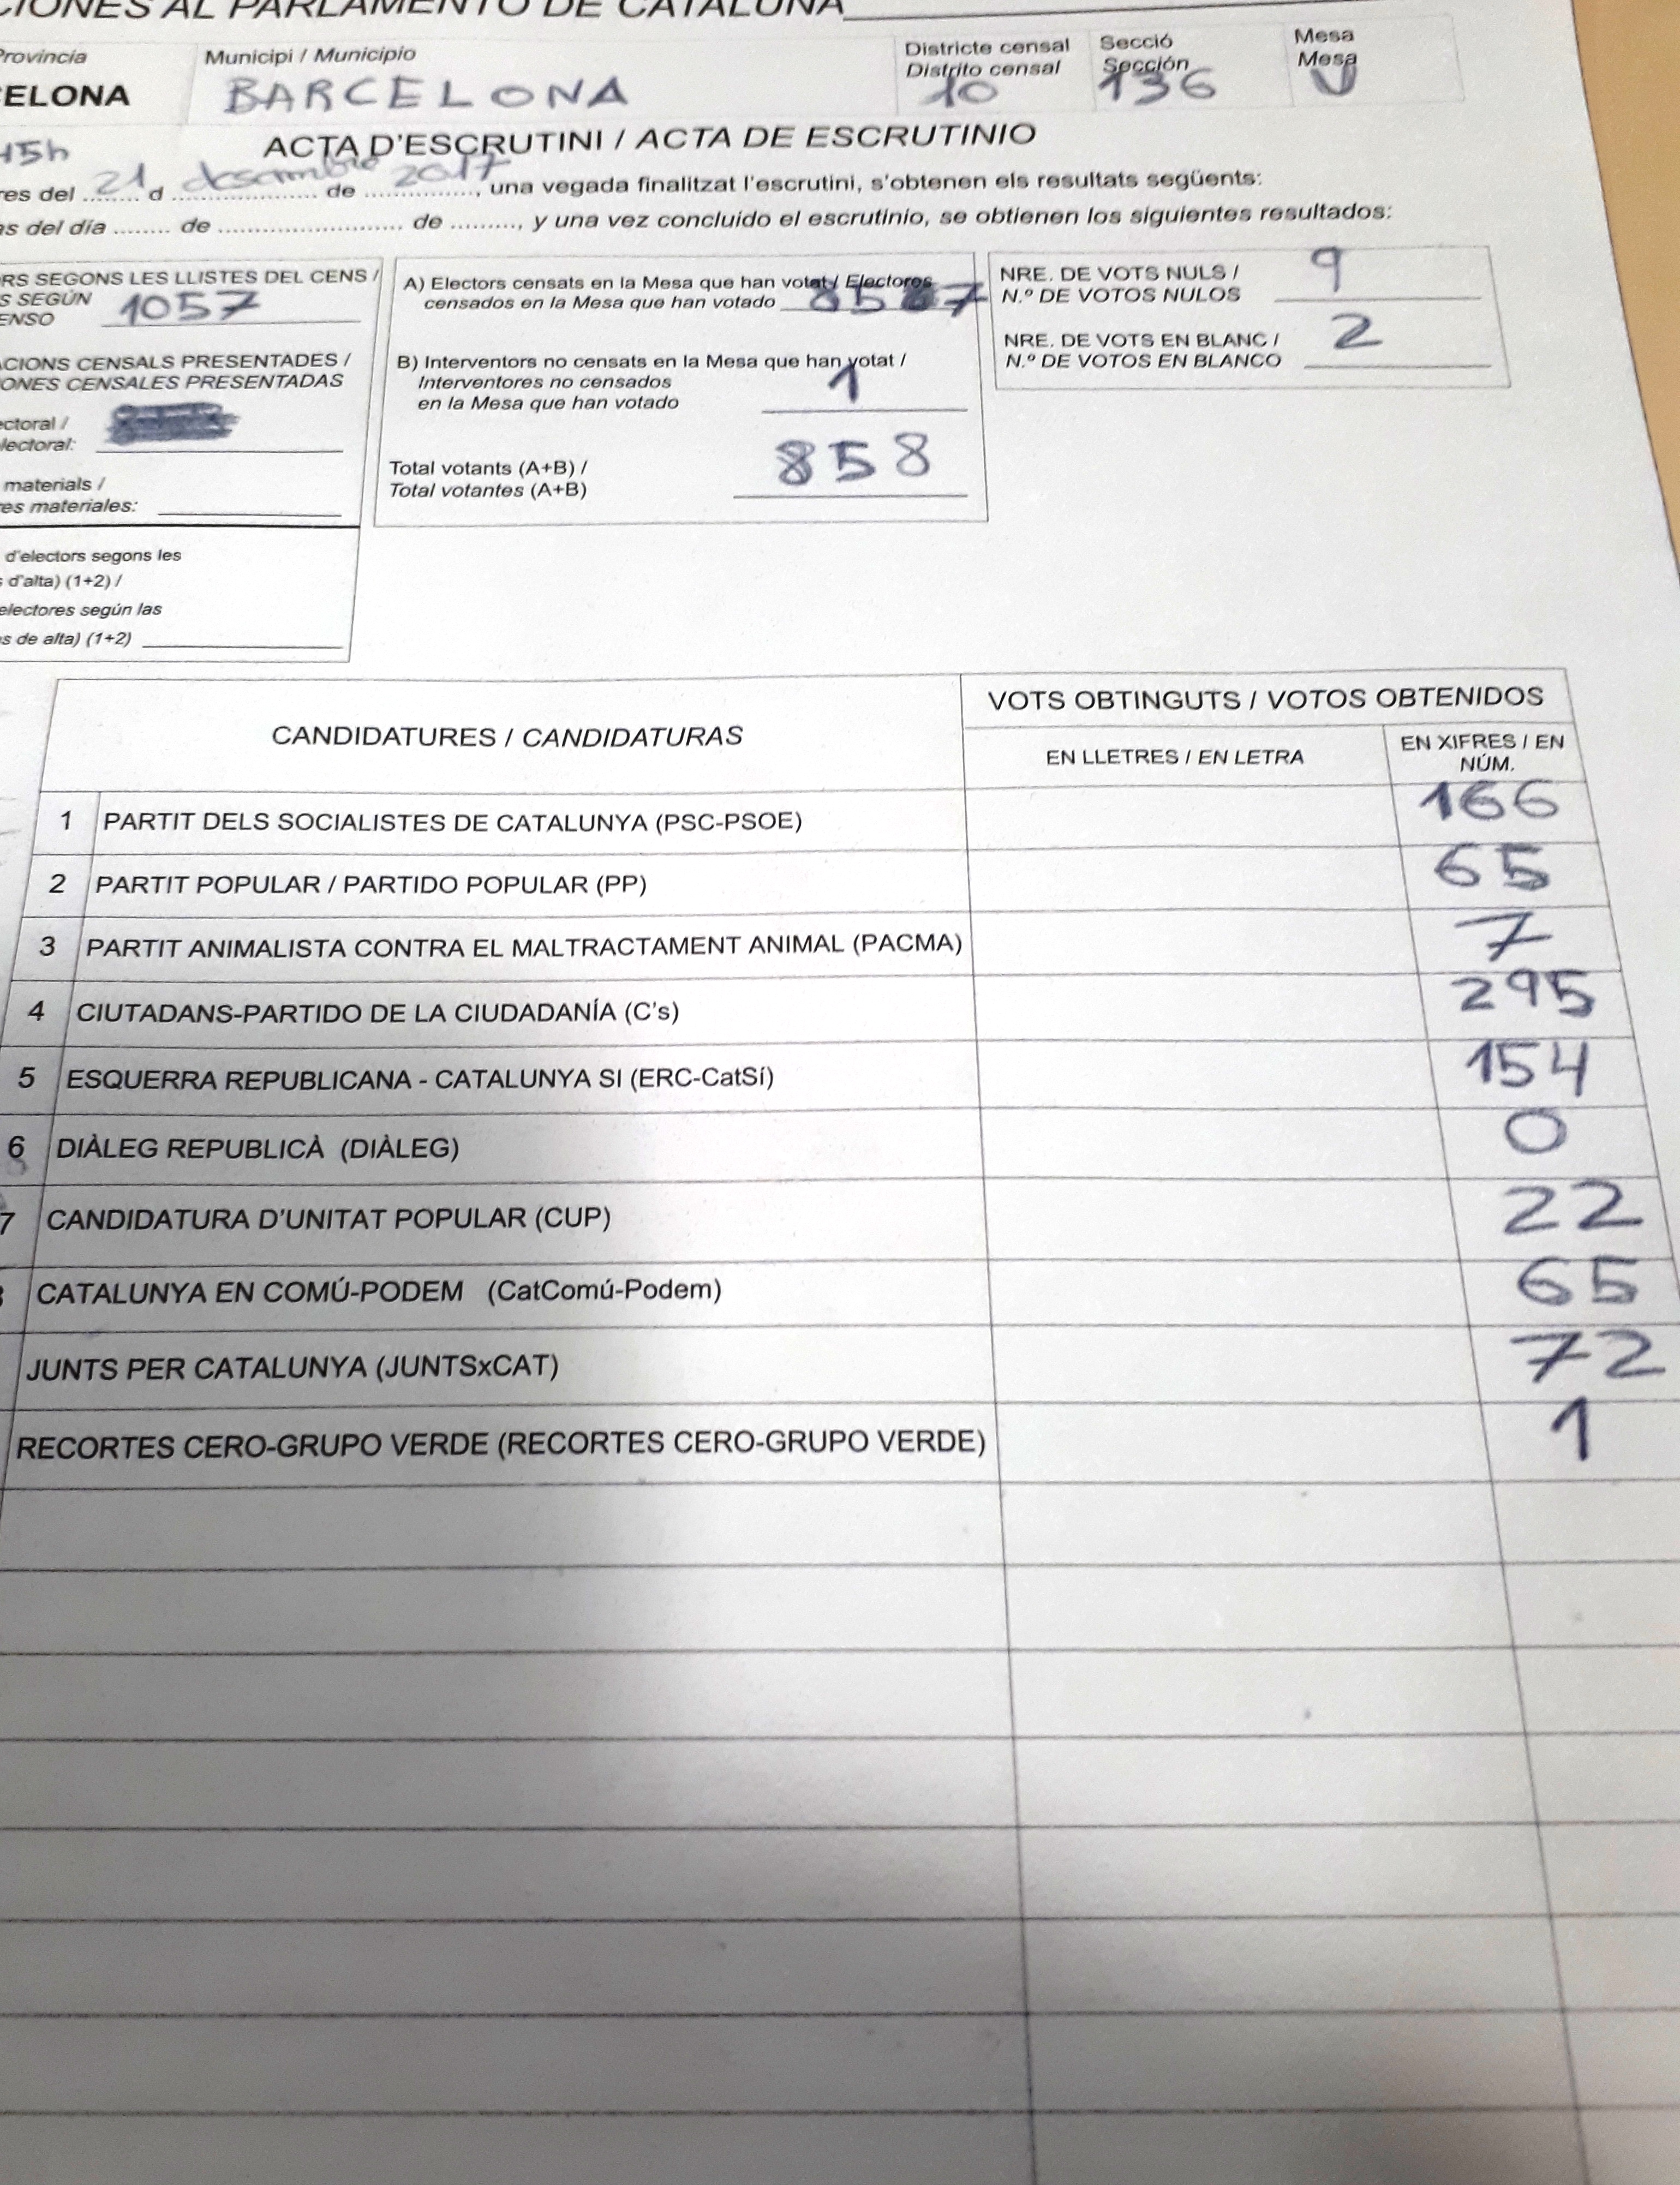 CIONES AL PARLAMENTO DE CATALUÑA
Provincia Municipi / Municipio Districte censal Secció Mesa
Distrito censal Sección Mesa
ELONA BARCELONA 10 136 U
ACTA D'ESCRUTINI / ACTA DE ESCRUTINIO
45h
res del 21 d desembre de 2017, una vegada finalitzat l'escrutini, s'obtenen els resultats següents:
as del día ........ de ........................... de ........., y una vez concluido el escrutinio, se obtienen los siguientes resultados:
RS SEGONS LES LLISTES DEL CENS /
S SEGÚN
ENSO 1057
ACIONS CENSALS PRESENTADES /
ONES CENSALES PRESENTADAS
ectoral /
lectoral:
materials /
res materiales:
d'electors segons les
s d'alta) (1+2) /
electores según las
s de alta) (1+2)
A) Electors censats en la Mesa que han votat / Electores
censados en la Mesa que han votado 857
B) Interventors no censats en la Mesa que han votat /
Interventores no censados
en la Mesa que han votado 1
Total votants (A+B) /
Total votantes (A+B) 858
NRE. DE VOTS NULS /
N.º DE VOTOS NULOS 9
NRE. DE VOTS EN BLANC /
N.º DE VOTOS EN BLANCO 2
CANDIDATURES / CANDIDATURAS VOTS OBTINGUTS / VOTOS OBTENIDOS
EN LLETRES / EN LETRA EN XIFRES / EN
NÚM.
1 PARTIT DELS SOCIALISTES DE CATALUNYA (PSC-PSOE) 166
2 PARTIT POPULAR / PARTIDO POPULAR (PP) 65
3 PARTIT ANIMALISTA CONTRA EL MALTRACTAMENT ANIMAL (PACMA) 7
4 CIUTADANS-PARTIDO DE LA CIUDADANÍA (C's) 295
5 ESQUERRA REPUBLICANA - CATALUNYA SI (ERC-CatSí) 154
6 DIÀLEG REPUBLICÀ (DIÀLEG) 0
7 CANDIDATURA D'UNITAT POPULAR (CUP) 22
CATALUNYA EN COMÚ-PODEM (CatComú-Podem) 65
JUNTS PER CATALUNYA (JUNTSxCAT) 72
RECORTES CERO-GRUPO VERDE (RECORTES CERO-GRUPO VERDE) 1